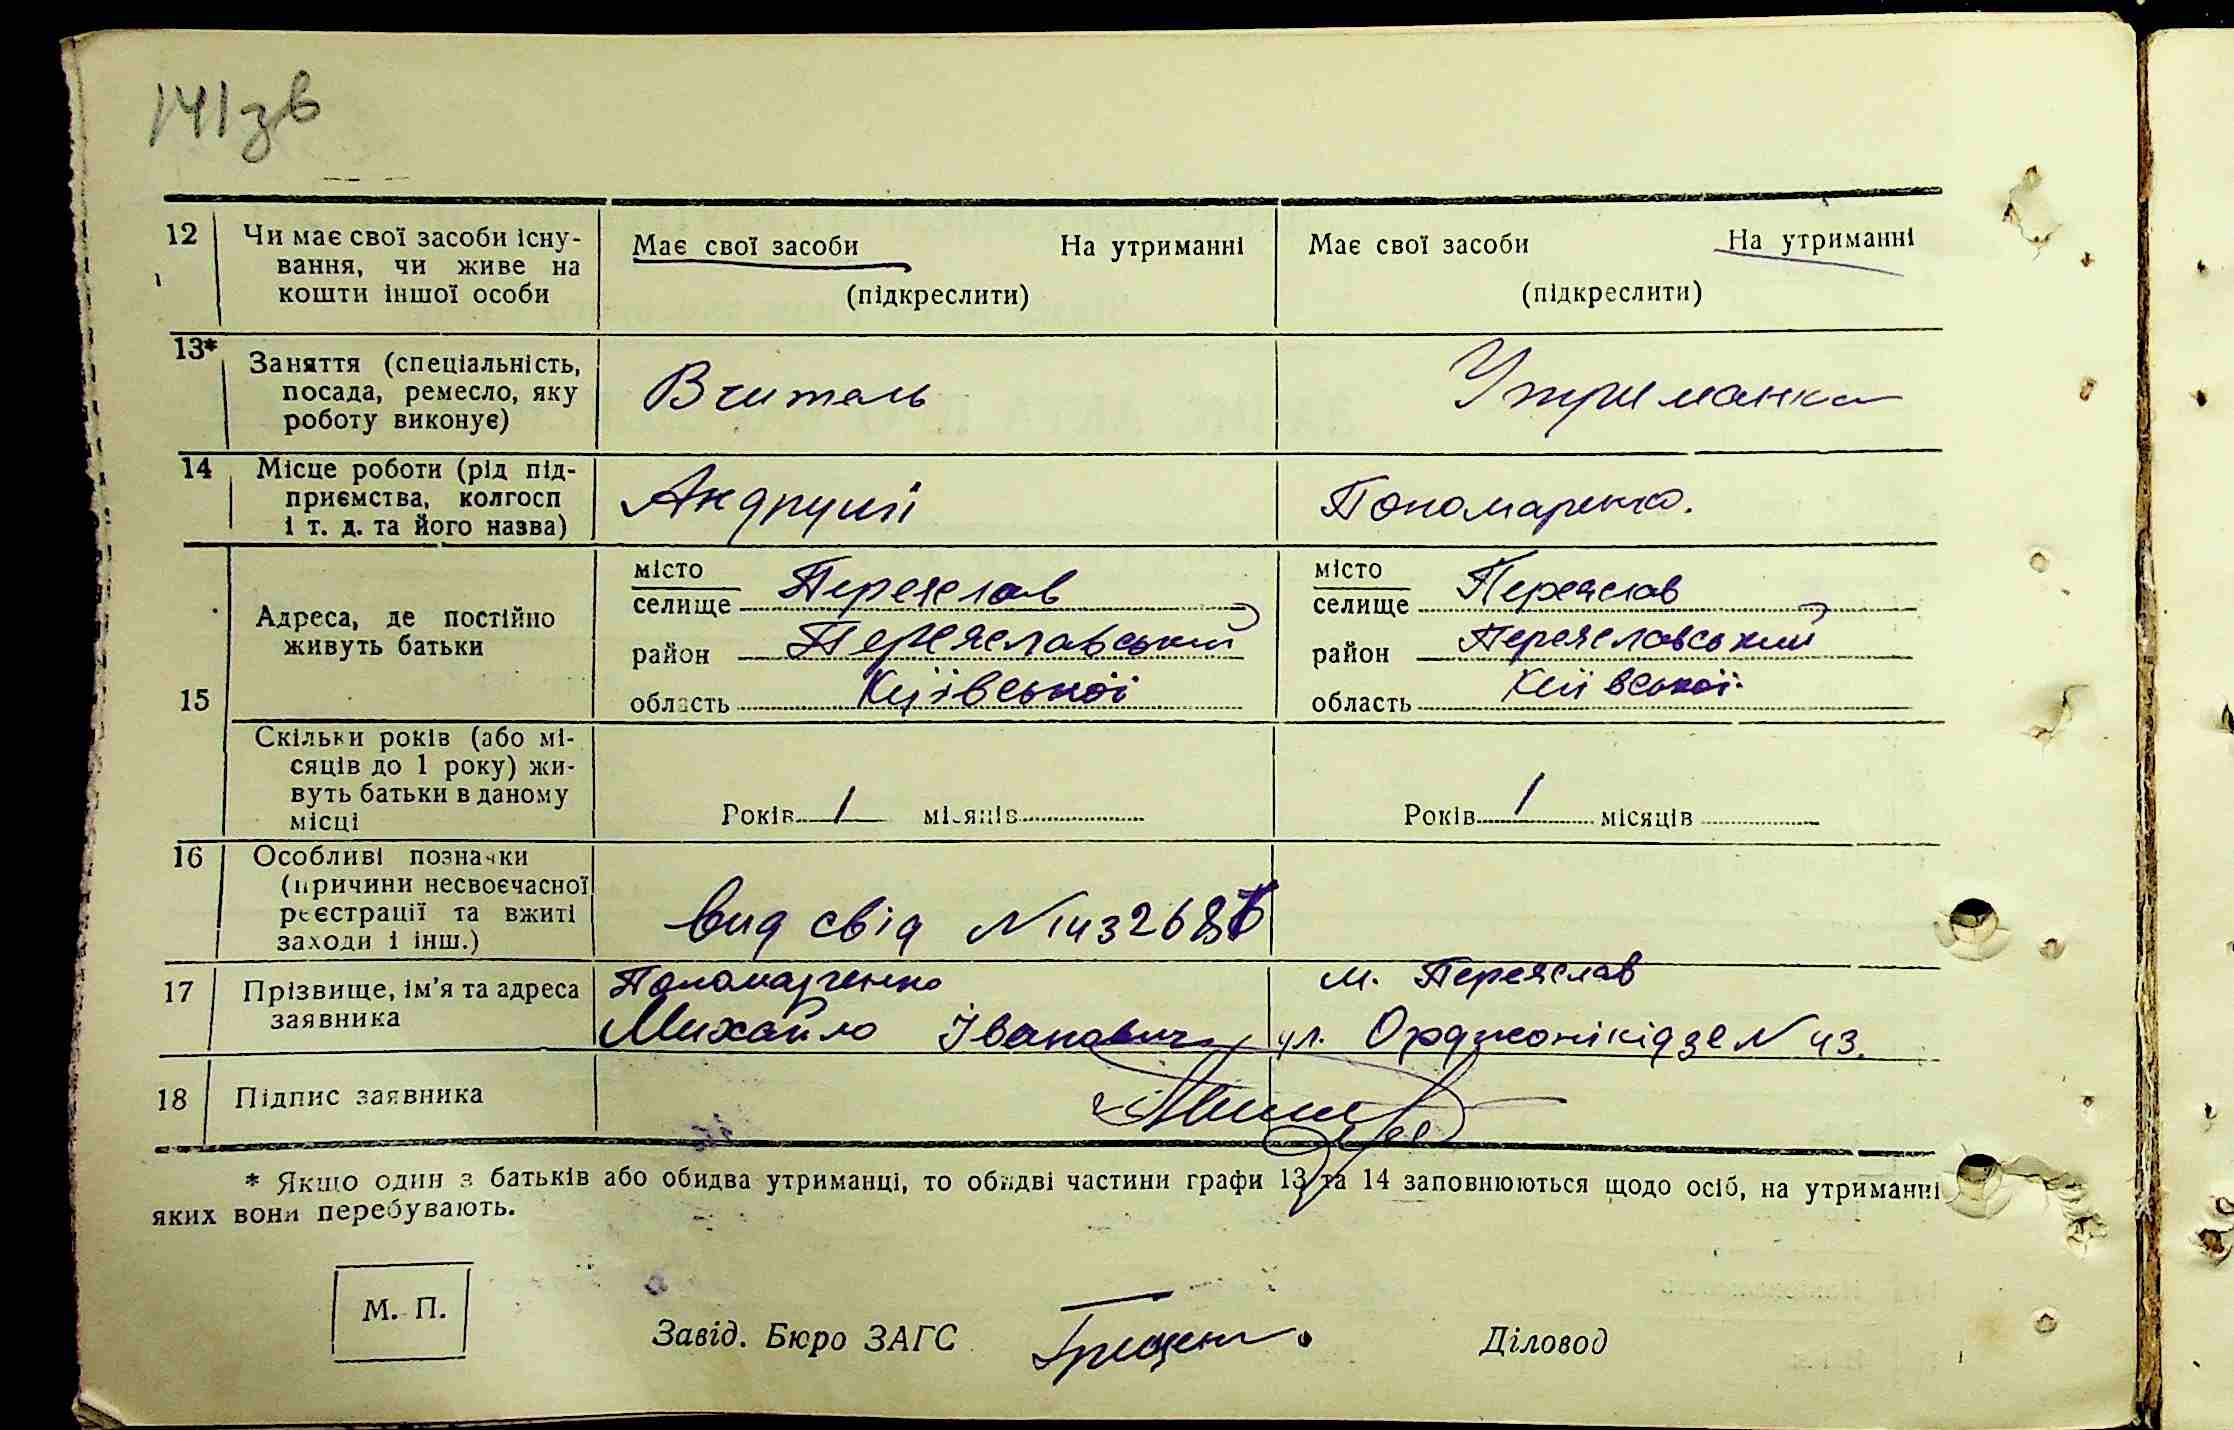 141зв
12 Чи має свої засоби існу-
вання, чи живе на
кошти іншої особи
Має свої засоби На утриманні
(підкреслити)
Має свої засоби На утриманні
(підкреслити)
13* Заняття (спеціальність,
посада, ремесло, яку
роботу виконує)
Вчитель
Утриманка
14 Місце роботи (рід під-
приємства, колгосп
і т. д. та його назва)
Андруші
Пономаренко.
15
Адреса, де постійно
живуть батьки
місто
селище Переяслав
район Переяславський
область Київської
місто
селище Переяслав
район Переяславський
область Київської
Скільки років (або мі-
сяців до 1 року) жи-
вуть батьки в даному
місці
Років 1 місяців
Років 1 місяців
16 Особливі позначки
(причини несвоєчасної
реєстрації та вжиті
заходи і інш.)
вид свід №
17 Прізвище, ім'я та адреса
заявника
Пономаренко
Михайло Іванович
м. Переяслав
ул. Орджонікідзе N 43.
18 Підпис заявника
* Якщо один з батьків або обидва утриманці, то обидві частини графи 13 та 14 заповнюються щодо осіб, на утриманні
яких вони перебувають.
М. П.
Завід. Бюро ЗАГС
Діловод